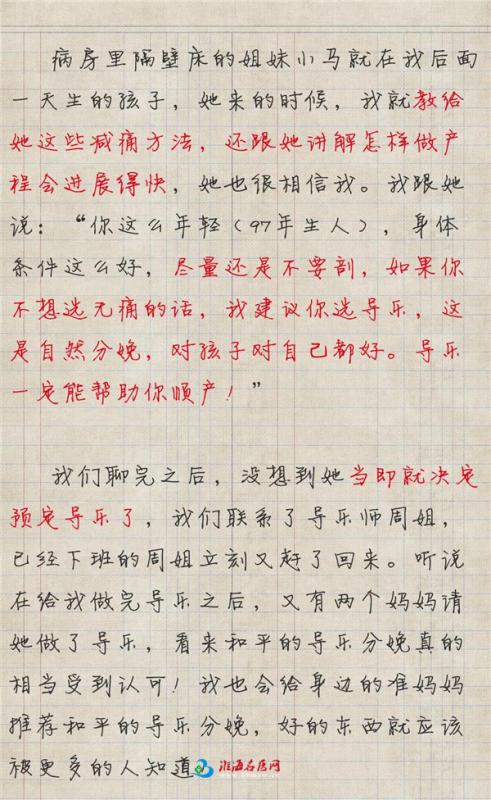 病房里隔壁床的姐妹小马就在我后面
一天生的孩子，她来的时候，我就教给
她这些减痛方法，还跟她讲解怎样做产
程会进展得快，她也很相信我。我跟她
说：“你这么年轻（97年生人），身体
条件这么好，尽量还是不要剖，如果你
不想选无痛的话，我建议你选导乐，这
是自然分娩，对孩子对自己都好。导乐
一定能帮助你顺产！”
我们聊完之后，没想到她当即就决定
预定导乐了，我们联系了导乐师周姐，
已经下班的周姐立刻又赶了回来。听说
在给我做完导乐之后，又有两个妈妈请
她做了导乐，看来和平的导乐分娩真的
相当受到认可！我也会给身边的准妈妈
推荐和平的导乐分娩，好的东西就应该
被更多的人知道
淮海名医网